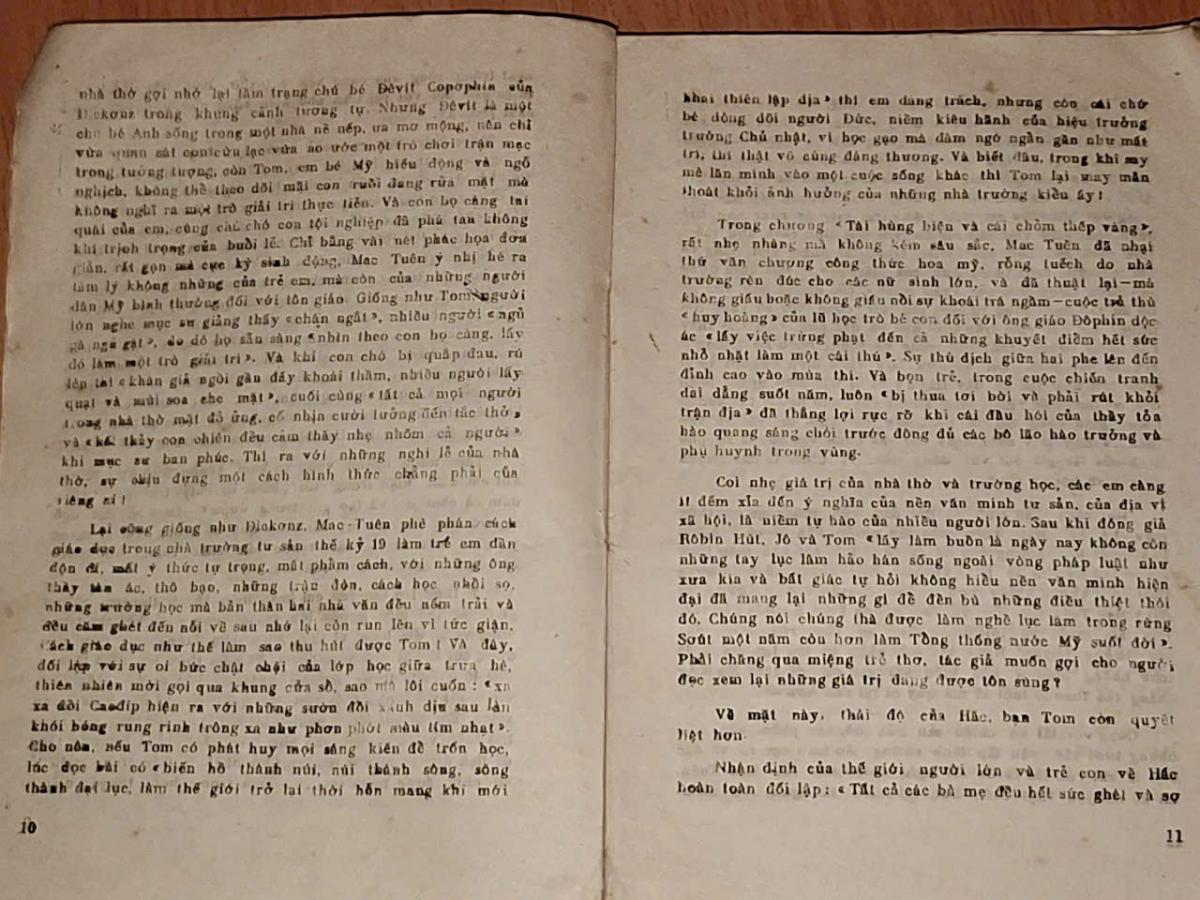 nhà thờ gợi nhớ lại tâm trạng chú bé Đêvit Copơphin của
Dickonz trong khung cảnh tương tự. Nhưng Đêvit là một
chú bé Anh sống trong một nhà nề nếp, ưa mơ mộng, nên chỉ
vừa quan sát con cừu lạc vừa ao ước một trò chơi trận mạc
trong tưởng tượng, còn Tom, em bé Mỹ hiếu động và ngỗ
nghịch, không thể theo dõi mãi con ruồi đang rửa mặt mà
không nghĩ ra một trò giải trí thực tiễn. Và con bọ càng tai
quái của em, cùng chú chó con tội nghiệp đã phá tan không
khí trịch trọng của buổi lễ. Chỉ bằng vài nét phác họa đơn
giản, rất gọn mà cực kỳ sinh động, Mac Tuên ý nhị hé ra
tâm lý không những của trẻ em, mà còn của những người
dân Mỹ bình thường đối với tôn giáo. Giống như Tom, người
lớn nghe mục sư giảng thấy «chán ngắt», nhiều người «ngủ
gà ngủ gật», do đó họ sẵn sàng «nhìn theo con bọ càng, lấy
đó làm một trò giải trí». Và khi con chó bị quắp đau, rú
lên thì «khán giả ngồi gần đấy khoái thầm, nhiều người lấy
quạt và mùi soa che mặt», cuối cùng «tất cả mọi người
trong nhà thờ mặt đỏ ửng, cố nhịn cười tưởng đến tắc thở»
và «hết thảy con chiên đều cảm thấy nhẹ nhõm cả người»
khi mục sư ban phúc. Thì ra với những nghi lễ của nhà
thờ, sự chịu đựng một cách hình thức chẳng phải của
riêng ai!
Lại cũng giống như Dickonz, Mac-Tuên phê phán cách
giáo dục trong nhà trường tư sản thế kỷ 19 làm trẻ em đần
độn đi, mất ý thức tự trọng, mất phẩm cách, với những ông
thày tàn ác, thô bạo, những trận đòn, cách học nhồi sọ,
những trường học mà bản thân hai nhà văn đều nếm trải và
đều căm ghét đến nỗi về sau nhớ lại còn run lên vì tức giận.
Cách giáo dục như thế làm sao thu hút được Tom! Và đây,
đối lập với sự oi bức chật chội của lớp học giữa trưa hè,
thiên nhiên mời gọi qua khung cửa sổ, sao mà lôi cuốn: «xa
xa đồi Cacđip hiện ra với những sườn đồi xanh dịu sau làn
khói bóng rung rinh trông xa như phơn phớt màu tím nhạt».
Cho nên, nếu Tom có phát huy mọi sáng kiến để trốn học,
lúc đọc bài có «biến hồ thành núi, núi thành sông, sông
thành đại lục, làm thế giới trở lại thời hỗn mang khi mới
10
khai thiên lập địa» thì em đáng trách, nhưng còn cái chú
bé dòng dõi người Đức, niềm kiêu hãnh của hiệu trưởng
trường Chủ nhật, vì học gạo mà đâm ngớ ngẩn gần như mất
trí, thì thật vô cùng đáng thương. Và biết đâu, trong khi say
mê lăn mình vào một cuộc sống khác thì Tom lại may mắn
thoát khỏi ảnh hưởng của những nhà trường kiểu ấy!
Trong chương «Tài hùng biện và cái chỏm thếp vàng»,
rất nhẹ nhàng mà không kém sâu sắc, Mac Tuên đã nhại
thứ văn chương công thức hoa mỹ, rỗng tuếch do nhà
trường rèn đúc cho các nữ sinh lớn, và đã thuật lại—mà
không giấu hoặc không giấu nổi sự khoái trá ngầm—cuộc trả thù
«huy hoàng» của lũ học trò bé con đối với ông giáo Đôphin độc
ác «lấy việc trừng phạt đến cả những khuyết điểm hết sức
nhỏ nhặt làm một cái thú». Sự thù địch giữa hai phe lên đến
đỉnh cao vào mùa thi. Và bọn trẻ, trong cuộc chiến tranh
dai dẳng suốt năm, luôn «bị thua tơi bời và phải rút khỏi
trận địa» đã thắng lợi rực rỡ khi cái đầu hói của thày tỏa
hào quang sáng chói trước đông đủ các bô lão hào trưởng và
phụ huynh trong vùng.
Coi nhẹ giá trị của nhà thờ và trường học, các em càng
ít đếm xỉa đến ý nghĩa của nền văn minh tư sản, của địa vị
xã hội, là niềm tự hào của nhiều người lớn. Sau khi đóng giả
Rôbin Hút, Jô và Tom «lấy làm buồn là ngày nay không còn
những tay lục lâm hảo hán sống ngoài vòng pháp luật như
xưa kia và bất giác tự hỏi không hiểu nền văn minh hiện
đại đã mang lại những gì để đền bù những điều thiệt thòi
đó. Chúng nói chúng thà được làm nghề lục lâm trong rừng
Sơút một năm còn hơn làm Tổng thống nước Mỹ suốt đời».
Phải chăng qua miệng trẻ thơ, tác giả muốn gợi cho người
đọc xem lại những giá trị đang được tôn sùng?
Về mặt này, thái độ của Hắc, bạn Tom còn quyết
liệt hơn.
Nhận định của thế giới người lớn và trẻ con về Hắc
hoàn toàn đối lập: «Tất cả các bà mẹ đều hết sức ghét và sợ
11